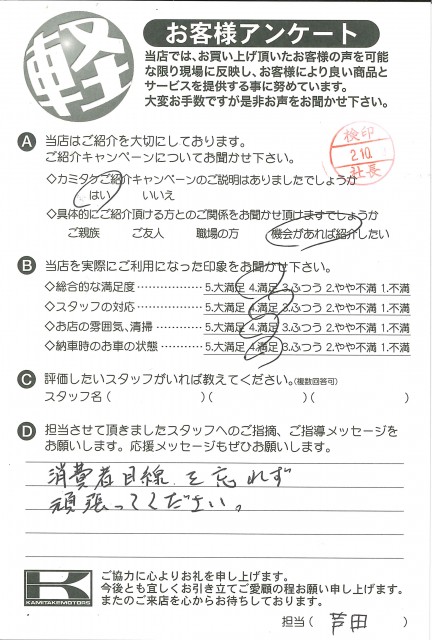 軽
お客様アンケート
当店では、お買い上げ頂いたお客様の声を可能
な限り現場に反映し、お客様により良い商品と
サービスを提供する事に努めています。
大変お手数ですが是非お声をお聞かせ下さい。
検印
2.10
社長
A 当店はご紹介を大切にしております。
ご紹介キャンペーンについてお聞かせ下さい。
◇カミタケご紹介キャンペーンのご説明はありましたでしょうか
はい いいえ
◇具体的にご紹介頂ける方とのご関係をお聞かせ頂けますでしょうか
ご親族 ご友人 職場の方 機会があれば紹介したい
B 当店を実際にご利用になった印象をお聞かせ下さい。
◇総合的な満足度………………5.大満足 4.満足 3.ふつう 2.やや不満 1.不満
◇スタッフの対応………………5.大満足 4.満足 3.ふつう 2.やや不満 1.不満
◇お店の雰囲気、清掃…………5.大満足 4.満足 3.ふつう 2.やや不満 1.不満
◇納車時のお車の状態…………5.大満足 4.満足 3.ふつう 2.やや不満 1.不満
C 評価したいスタッフがいれば教えてください。(複数回答可)
スタッフ名( )( )( )
D 担当させて頂きましたスタッフへのご指摘、ご指導メッセージを
お願いします。応援メッセージもぜひお願いします。
消費者目線を忘れず
頑張ってください。
K
KAMITAKEMOTORS
ご協力に心よりお礼を申し上げます。
今後とも宜しくお引き立てご愛顧の程お願い申し上げます。
またのご来店を心からお待ちしております。
担当( 芦田 )